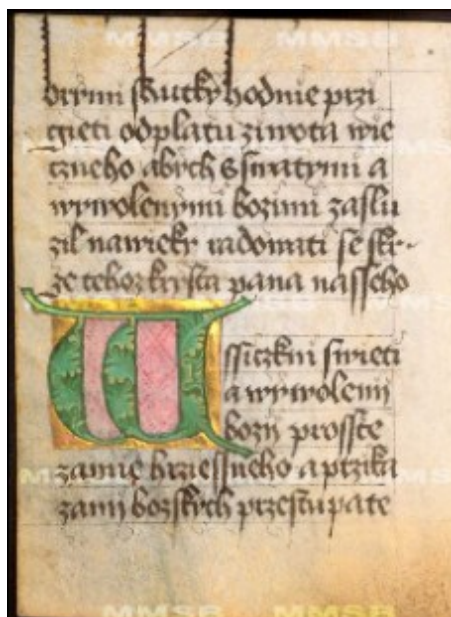 brymi skutky hodnie przi
gieti odplatu ziwota wie
czneho abych s swatymi a
wywolenymi bozimi zaslu
zil nawieky radowati se skr-
ze tehoz krysta pana nasseho
Wssiczkni swieti
a wywoleni
bozij prosste
zamie hrziessneho a przika
zanij bozskych przestupate